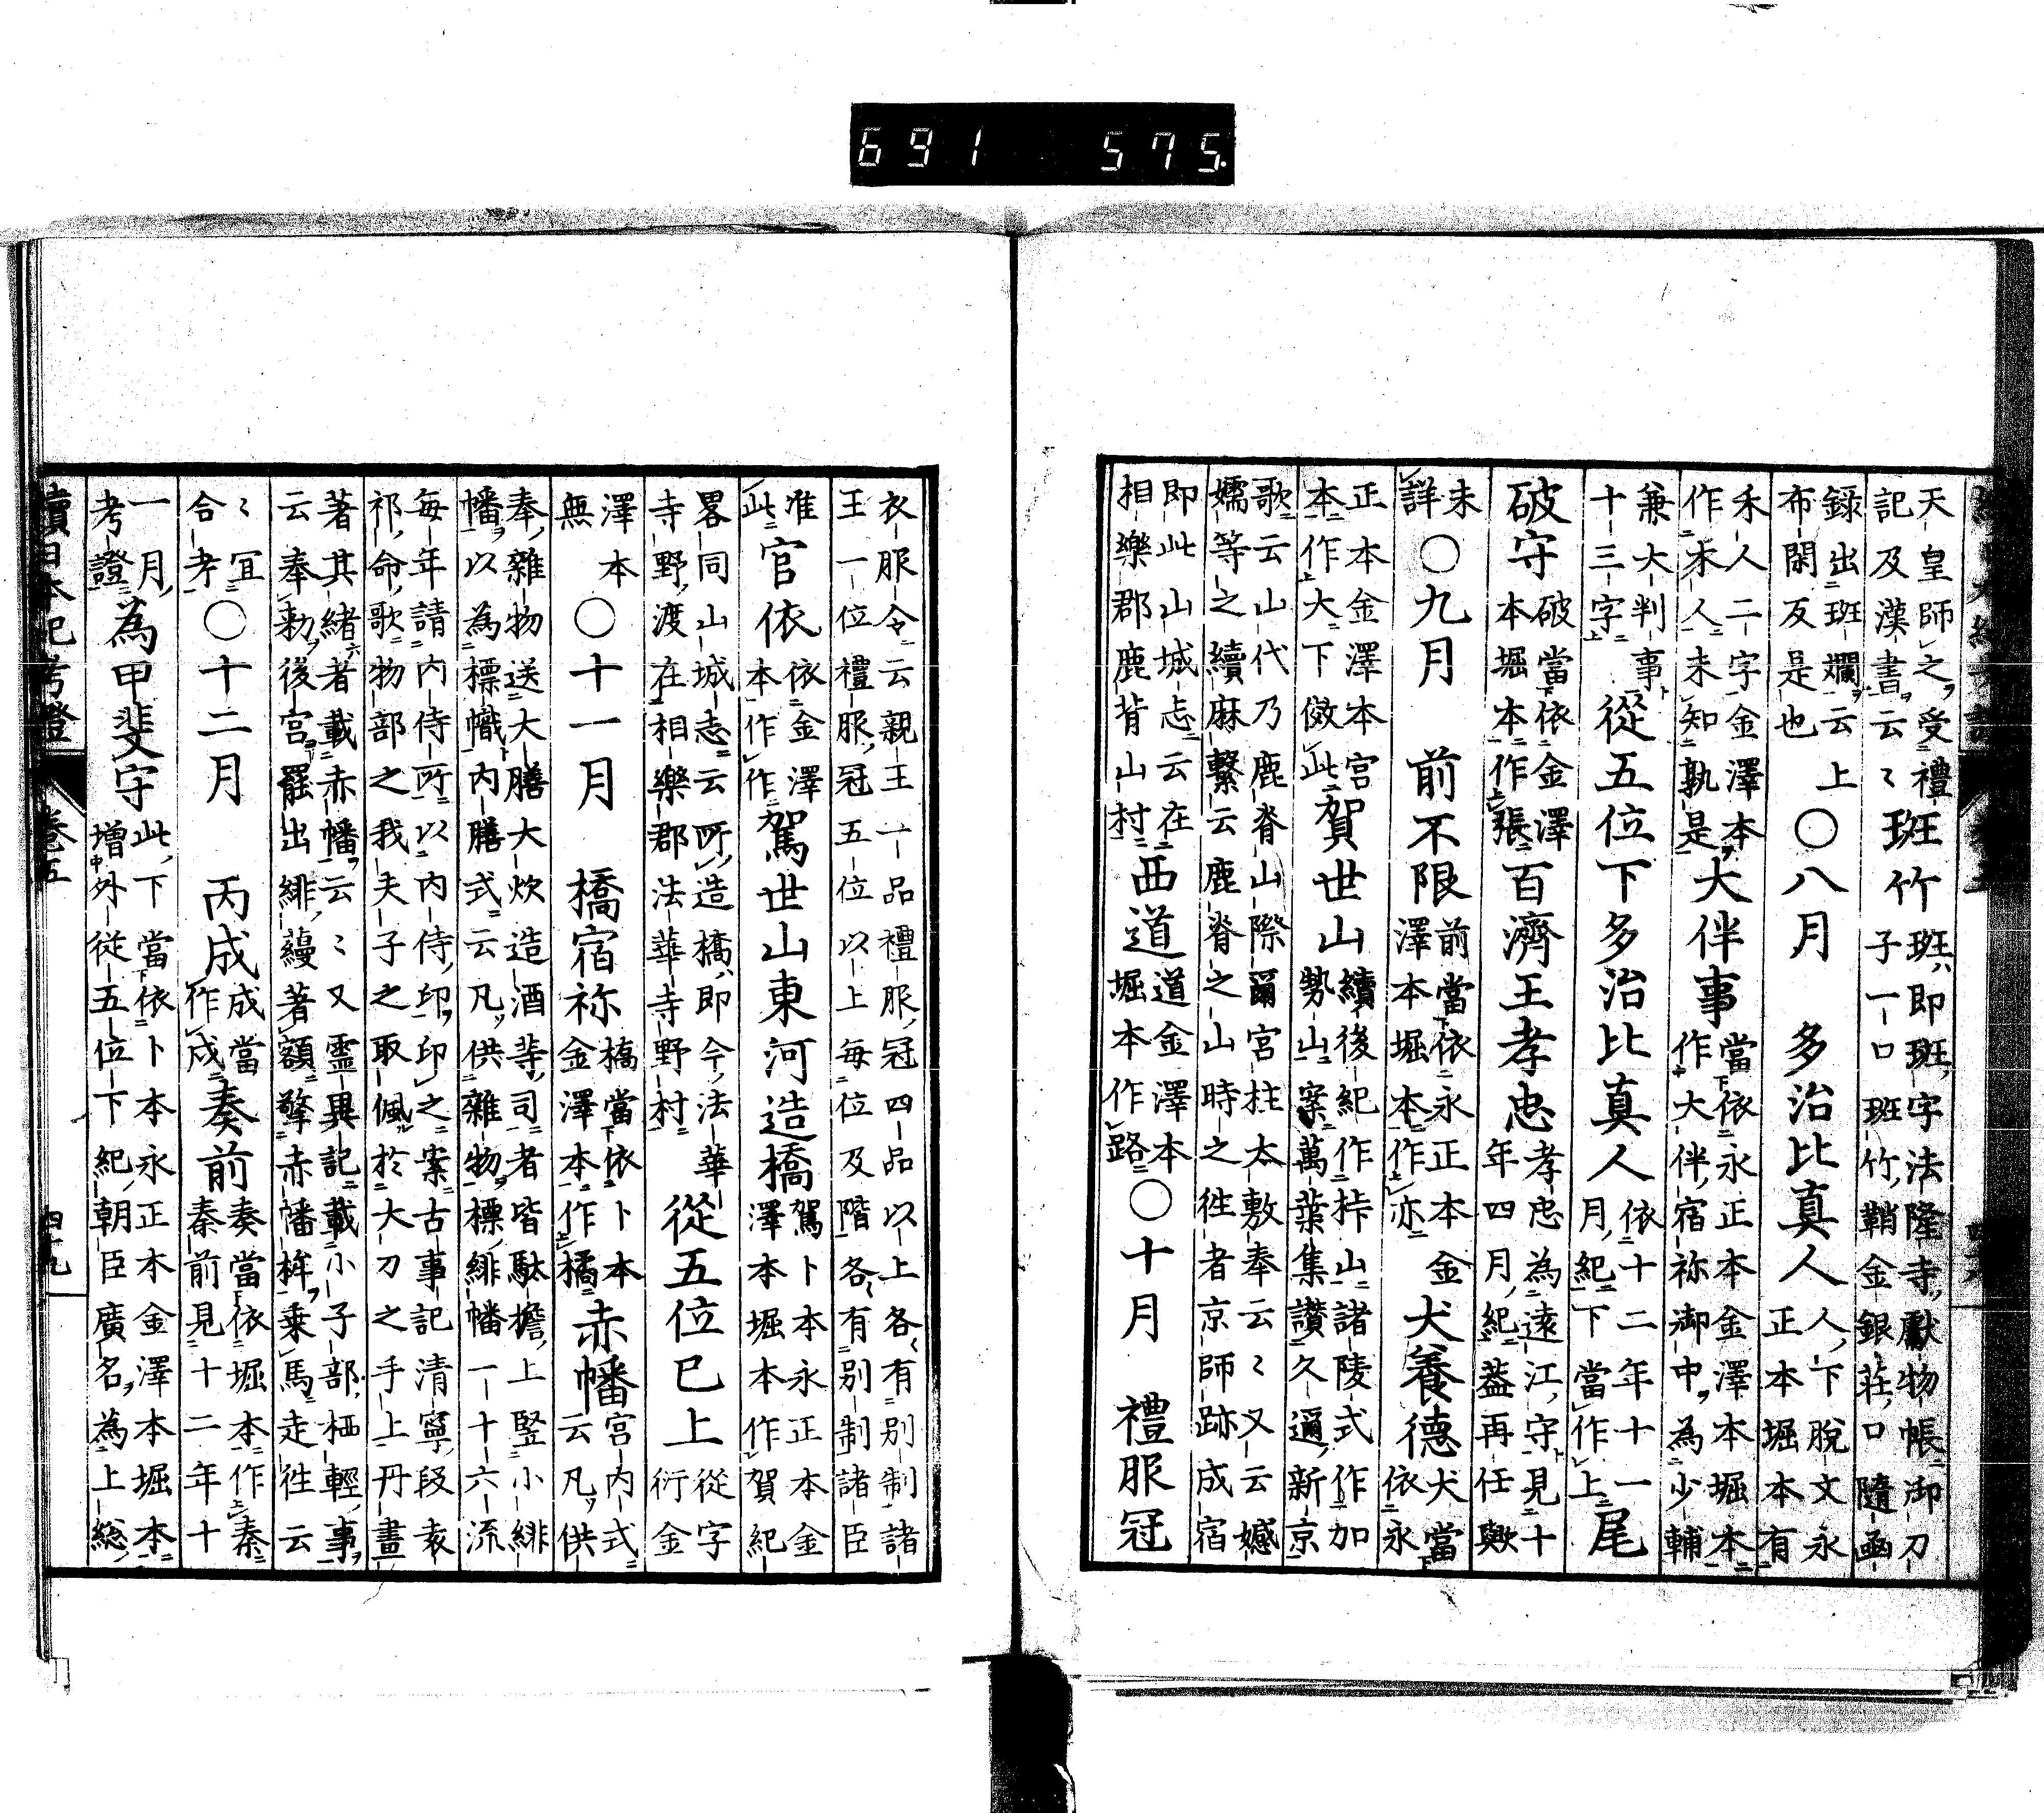 691 575
天皇師之受禮
記及漢書云〻
班竹
班即班字法隆寺獻物帳御刀
子一口班竹鞘金銀莊口隨函
錄出班斕云上
布閑反是也
○八月　多治比真人
人下脫文永
正本堀本有
禾人二字金澤本
作禾人未知孰是
大伴事
當依永正本金澤本堀本
作大伴宿祢御中為少輔
兼大判事
十三字
從五位下多治比真人
依十二年十一
月紀下當作上
尾
破守
破當依金澤
本堀本作張
百濟王孝忠
孝忠為遠江守見十
年四月紀蓋再任歟
未
詳
○九月　前不限
前當依永正本金
澤本堀本作亦
犬養德
犬當
依永
正本金澤本宮
本作大下倣此
賀世山
續後紀作桛山諸陵式作加
勢山案萬葉集讃久邇新京
歌云山代乃鹿脊山際爾宮柱太敷奉云〻又云㜝
嬬等之續麻繫云鹿脊之山時之往者京師跡成宿
即此山城志云在
相樂郡鹿背山村
西道
道金澤本
堀本作路
○十月　禮服冠
衣服令云親王一品禮服冠四品以上各有別制諸
王一位禮服冠五位以上每位及階各有別制諸臣
准
此
官依
依金澤
本作作
駕世山東河造橋
駕卜本永正本金
澤本堀本作賀紀
畧同山城志云所造橋即今法華
寺野渡在相樂郡法華寺野村
從五位巳上
從字
衍金
澤本
無
○十一月　橋宿祢
橋當依卜本
金澤本作橘
赤幡
宮內式
云凡供
奉雜物送大膳大炊造酒等司者皆駄擔上竪小緋
幡以為標幟內膳式云凡供雜物標緋幡一十六流
每年請內侍所以內侍印印之案古事記清寧段袁
祁命歌物部之我夫子之取佩於大刀之手上丹畫
著其緒者載赤幡云〻又靈異記載小子部栖輕事
云奉勑後宮罷出緋蘰著額擎赤幡桙乘馬走往云
〻宜
合考
○十二月　丙成
成當
作戌
奏前
奏當依堀本作秦
秦前見十二年十
一月
考證
為甲斐守
此下當依卜本永正本金澤本堀本
增外從五位下紀朝臣廣名為上總
續日本紀考證　卷五　四十九